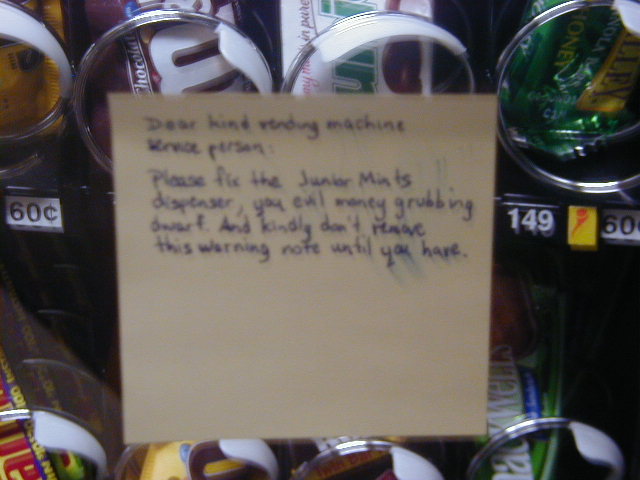 Dear kind vending machine
service person:
Please fix the Junior Mints
dispenser, you evil money grubbing
dwarf. And kindly don't remove
this warning note until you have.
60¢
149
60¢